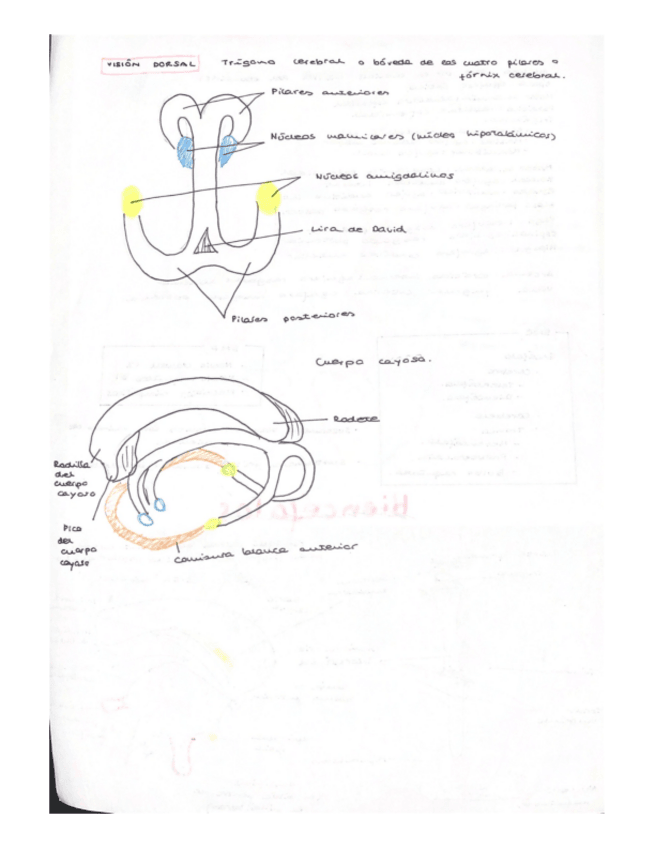 VISIÓN DORSAL
Trígono cerebral o bóveda de los cuatro pilares o
fórnix cerebral.
Pilares anteriores
Núcleos mamilares (núcleos hipotalámicos)
Núcleos amigdalinos
Lira de David
Pilares posteriores
Cuerpo cayoso.
Rodete
Rodilla
del
cuerpo
cayoso
Pico
del
cuerpo
cayoso
Comisura blanca anterior
diencéfalos